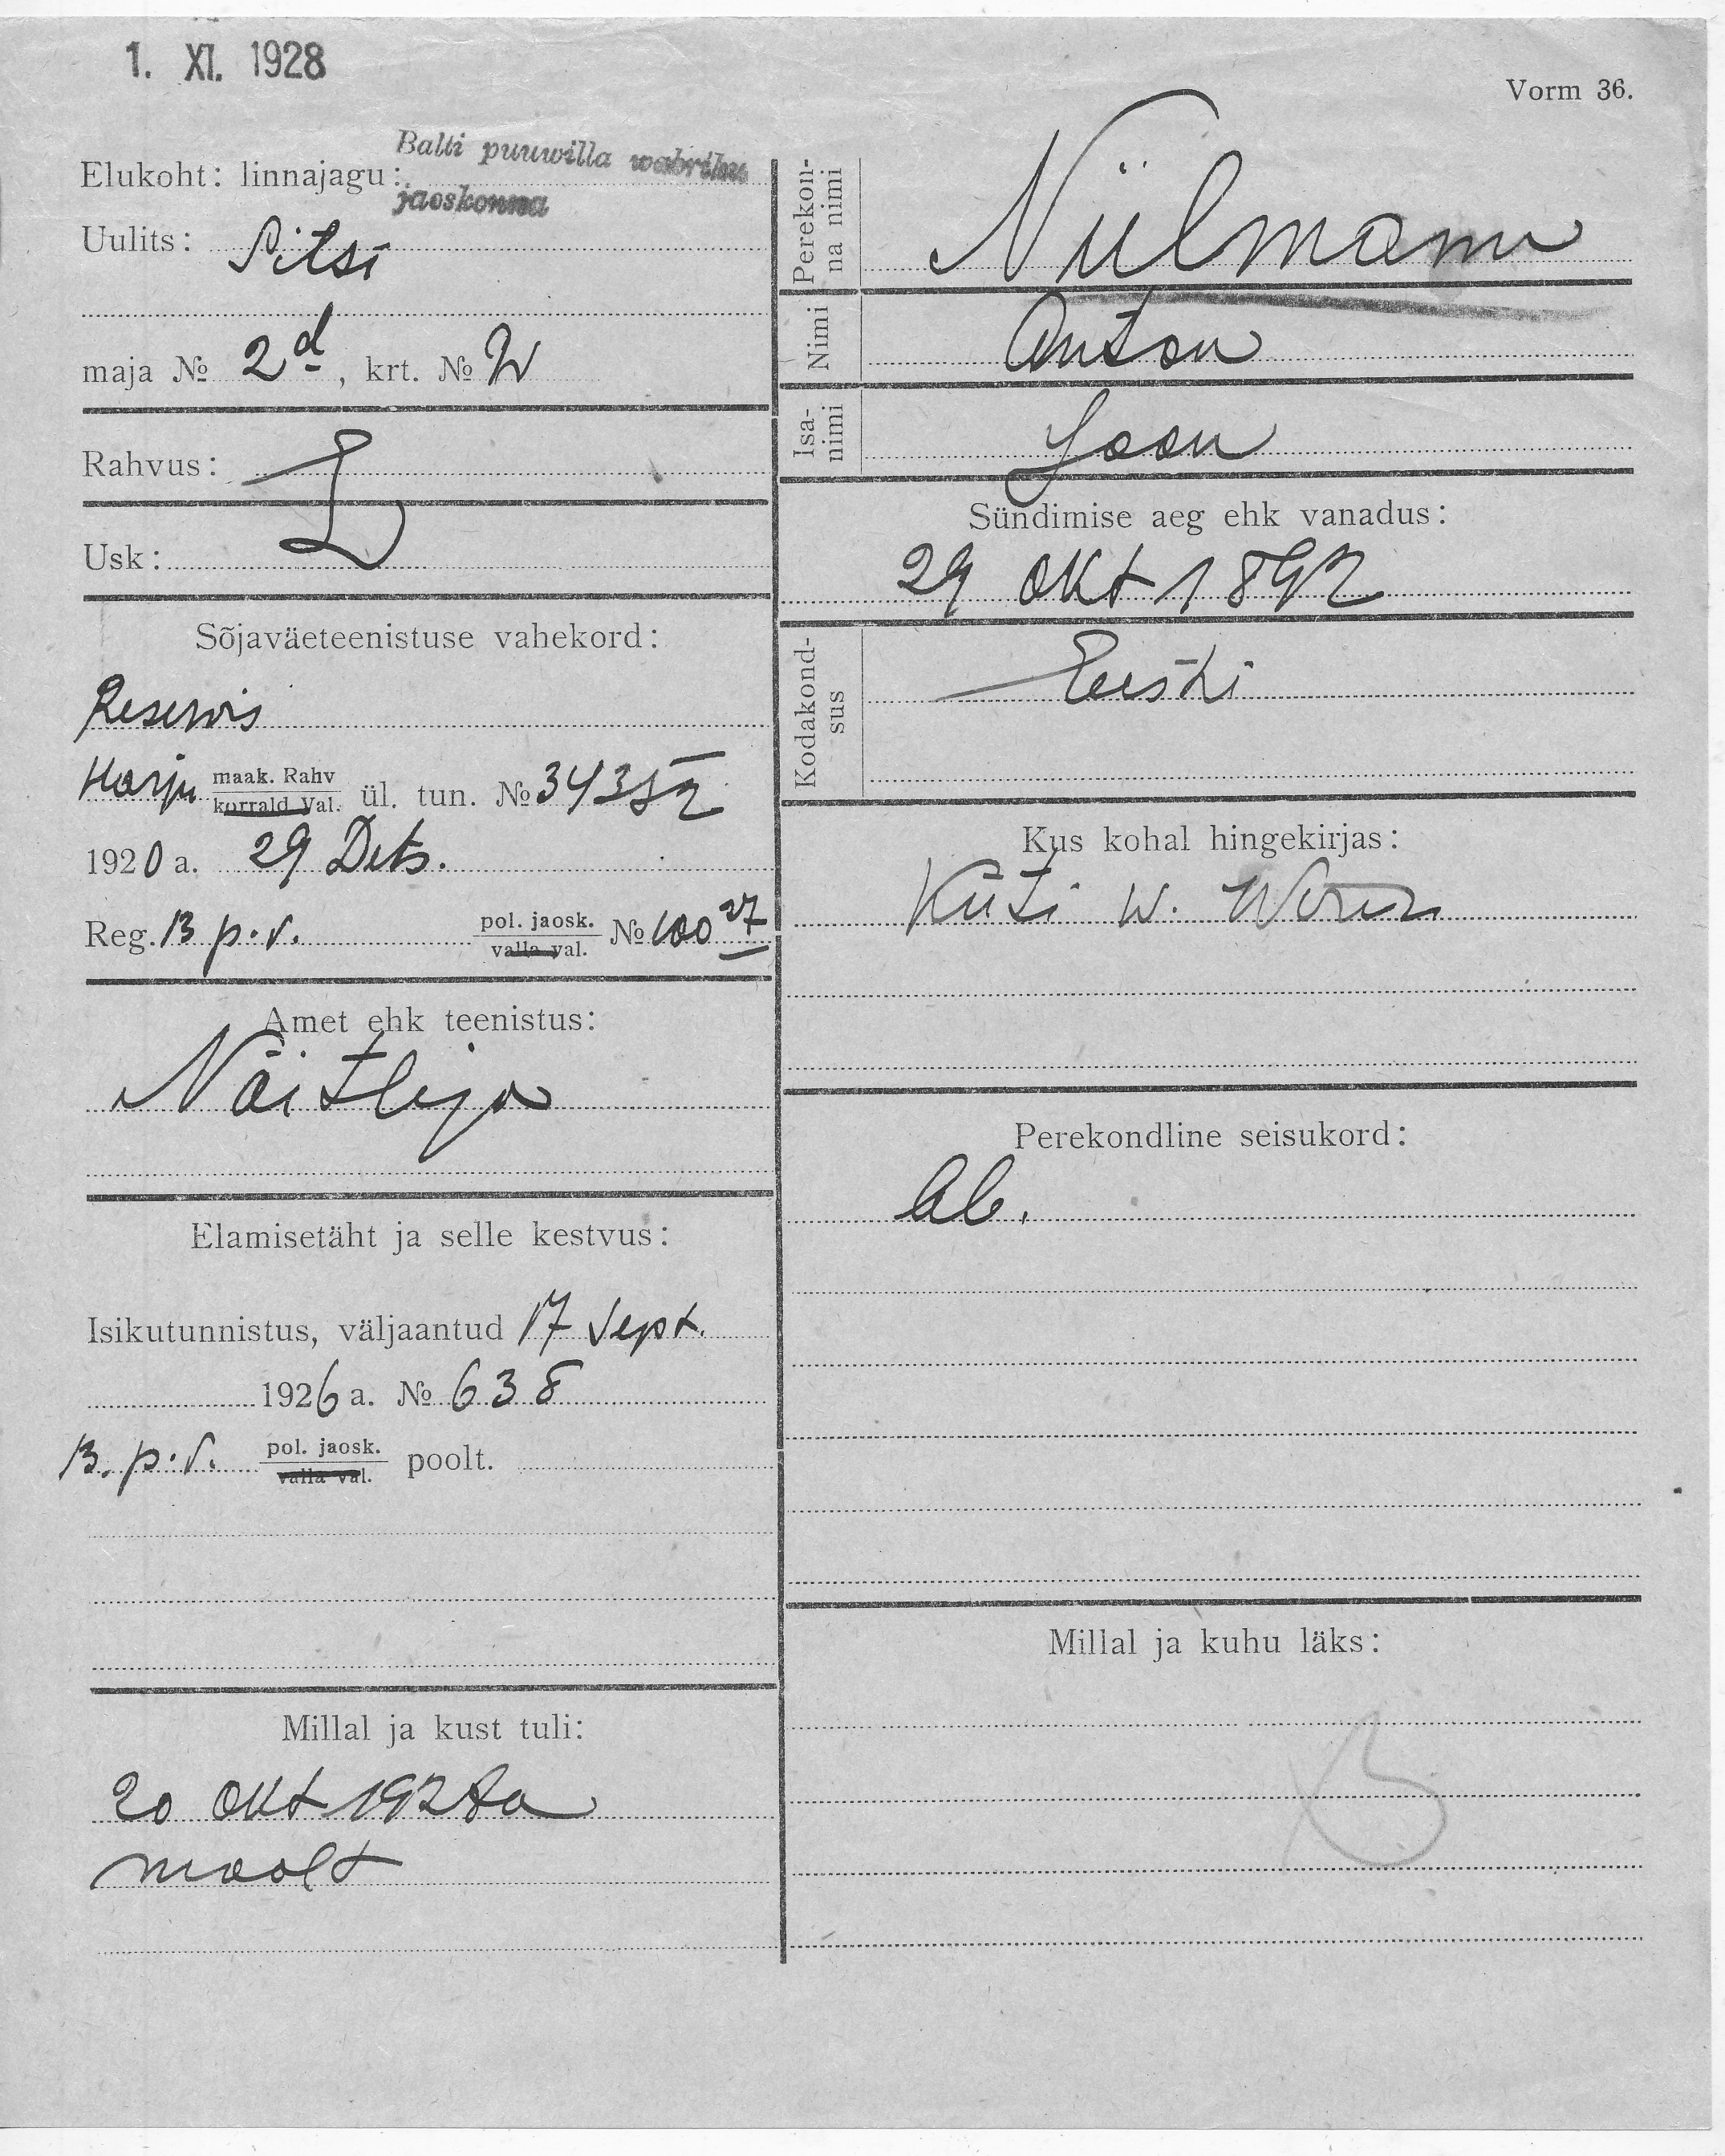 1. XI. 1928
Vorm 36.
Elukoht: linnajagu: Balti puuwilla wabriku
jaoskonna
Uulits: Sitsi
maja № 2d, krt. № 2
Rahvus: E
Usk: L
Sõjaväeteenistuse vahekord:
Reservis
Harju maak. Rahv korrald Val. ül. tun. № 34352
1920 a. 29 Dets.
Reg. B p.v. pol. jaosk. valla val. № 100 27
Amet ehk teenistus:
Näitleja
Elamisetäht ja selle kestvus:
Isikutunnistus, väljaantud 17 Sept.
1926 a. № 638
B. p.v. pol. jaosk. valla val. poolt.
Millal ja kust tuli:
20 Okt 1928 a
maalt
Perekonna nimi Niilmann
Nimi Anton
Isanimi Joan
Sündimise aeg ehk vanadus:
29 Okt 1892
Kodakondsus Eesti
Kus kohal hingekirjas:
Küti w.
Perekondline seisukord:
ab.
Millal ja kuhu läks: